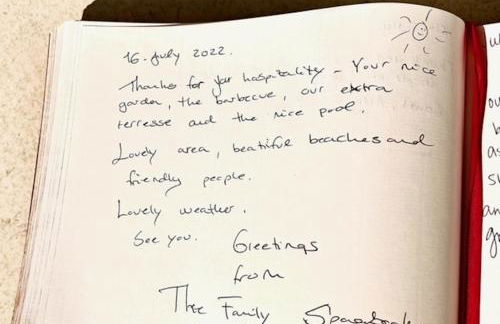 16. July 2022.
Thanks for your hospitality – Your nice
garden, the barbecue, our extra
terresse and the nice pool.
Lovely area, beatiful beaches and
friendly people.
Lovely weather.
See you. Greetings
from
The Family